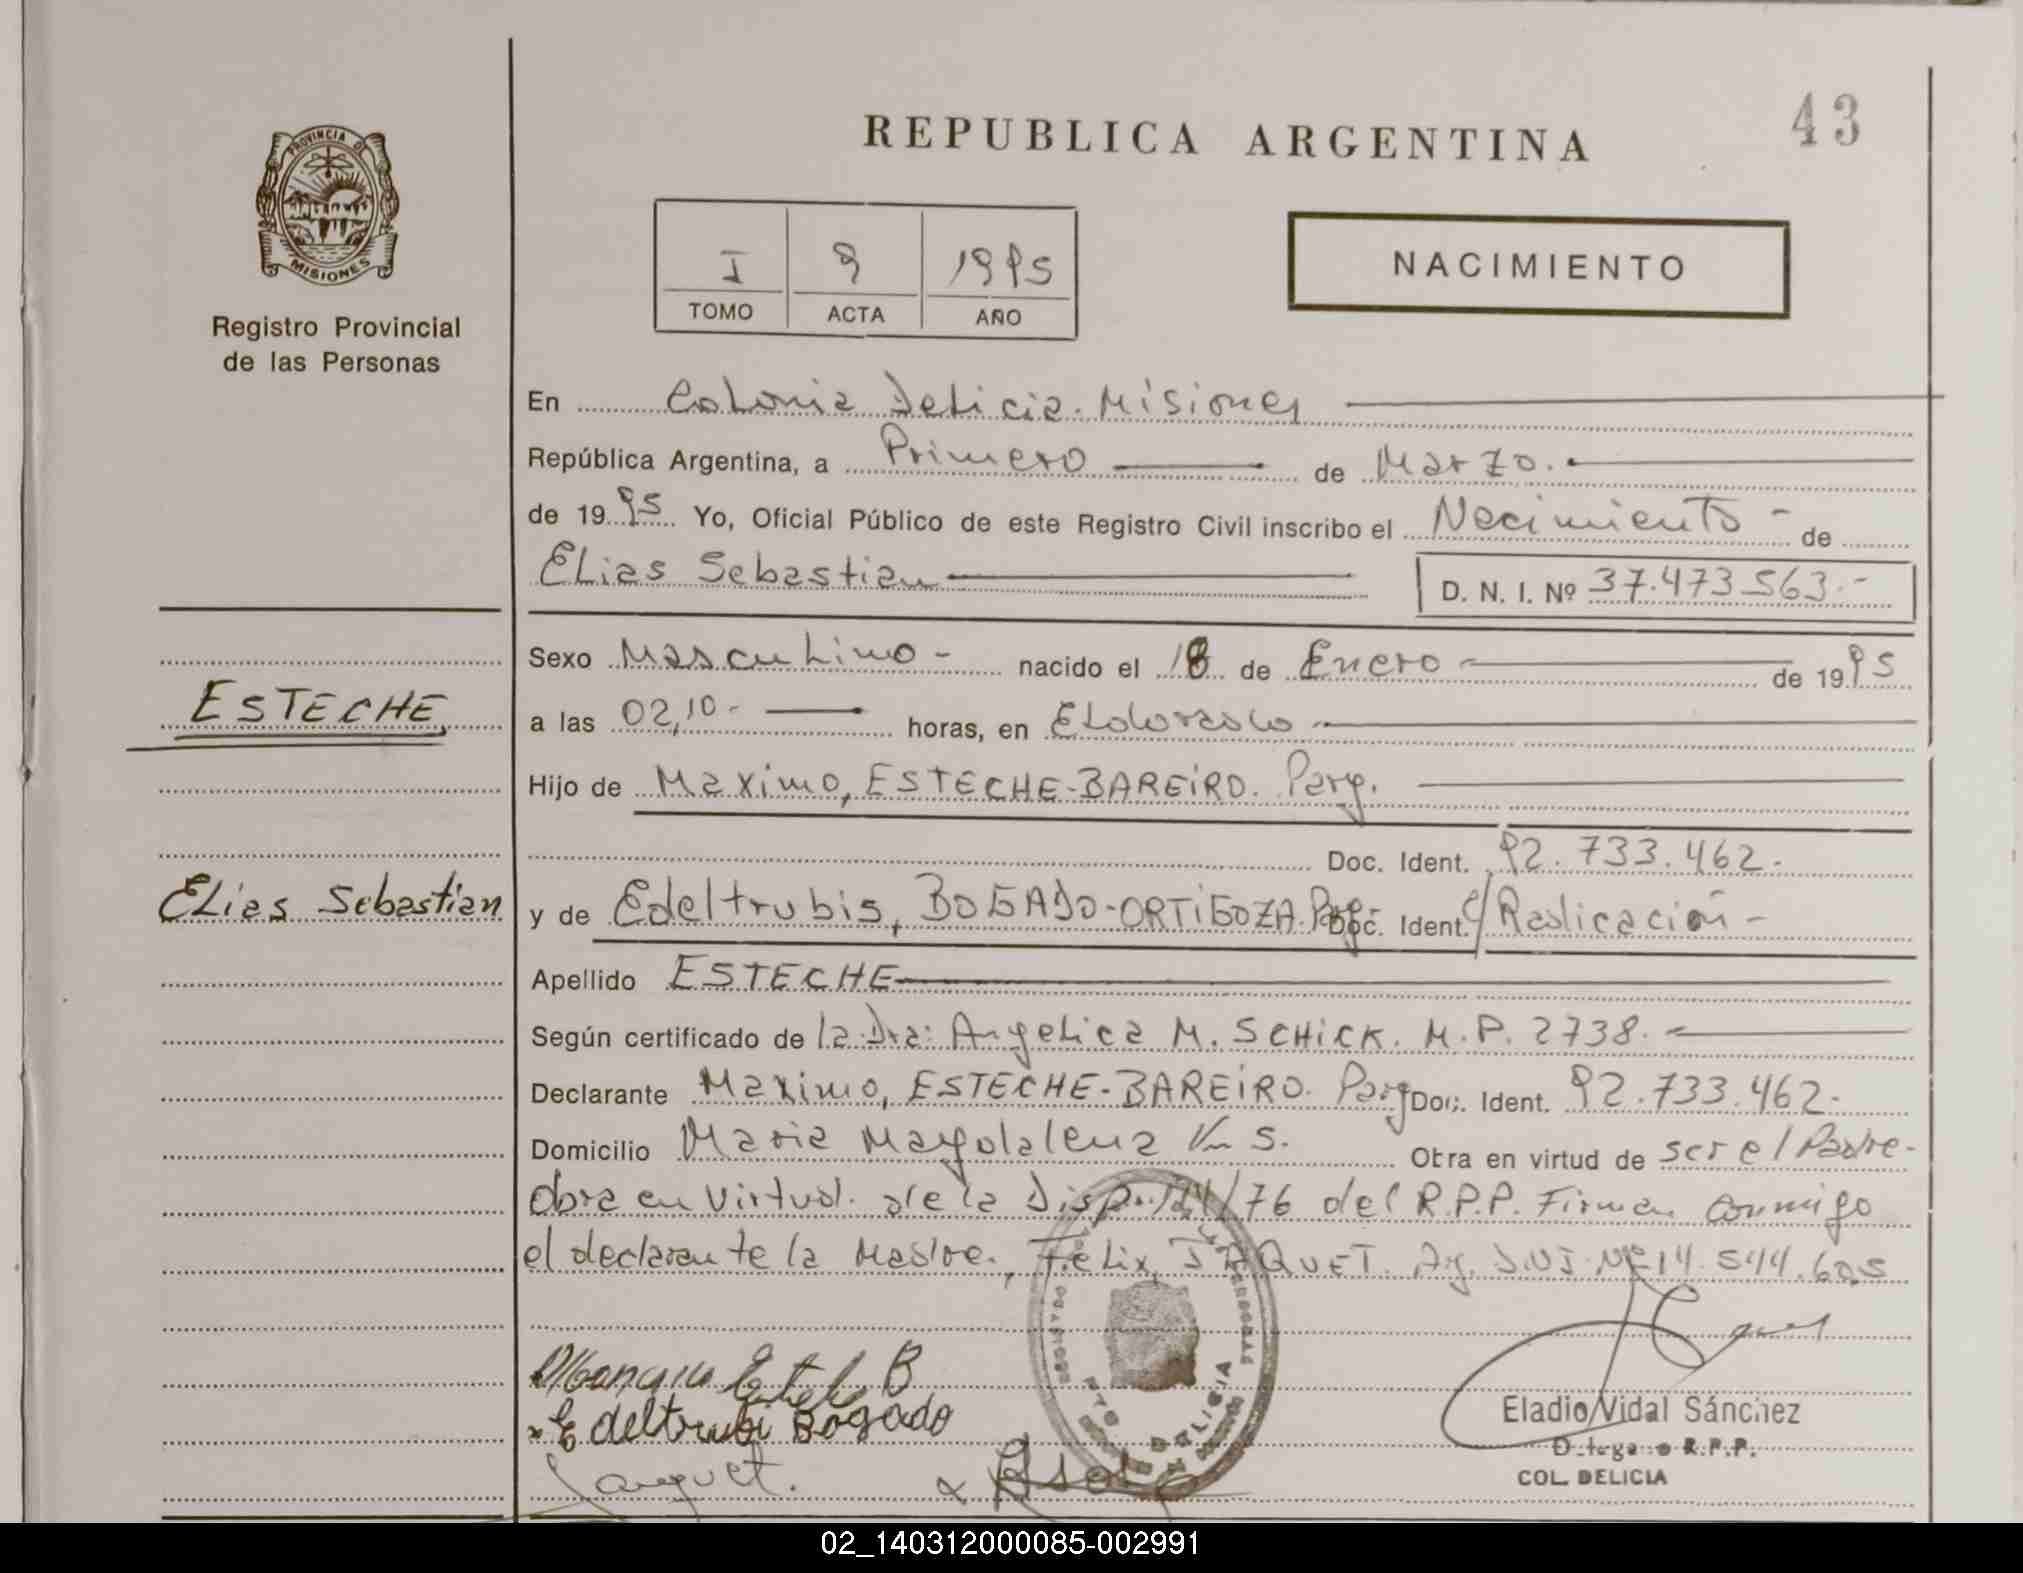 43
REPUBLICA ARGENTINA
PROVINCIA DE
MISIONES
Registro Provincial
de las Personas
I 9 1995
TOMO ACTA AÑO
NACIMIENTO
En Colonia Delicia. Misiones
República Argentina, a Primero de Marzo.
de 1995 Yo, Oficial Público de este Registro Civil inscribo el Nacimiento - de
Elias Sebastian D. N. I. Nº 37.473.563.-
Sexo Masculino - nacido el 18 de Enero de 1995
ESTECHE
a las 02,10.- horas, en Eldorado
Hijo de Maximo, ESTECHE-BAREIRO. Parg.
Doc. Ident. 92.733.462.
Elias Sebastian
y de Edeltrubis, BOGADO-ORTIGOZA. Parg. Doc. Ident. c/Radicación -
Apellido ESTECHE
Según certificado de la Dra: Angelica M. SCHICK. M.P. 2738.
Declarante Maximo, ESTECHE-BAREIRO. Parg Doc. Ident. 92.733.462.
Domicilio Maria Magdalena Km 5. Obra en virtud de ser el Padre.
obra en virtud de la Disp. /76 del R.P.P. Firman conmigo
el declarante la Madre., Felix, JAQUET. Arg. D.N.I. Nº 14.544.605
B
Edeltrubi Bogado
Jaquet.
DELICIA
Eladio Vidal Sánchez
Delegado R.P.P.
COL. DELICIA
02_140312000085-002991